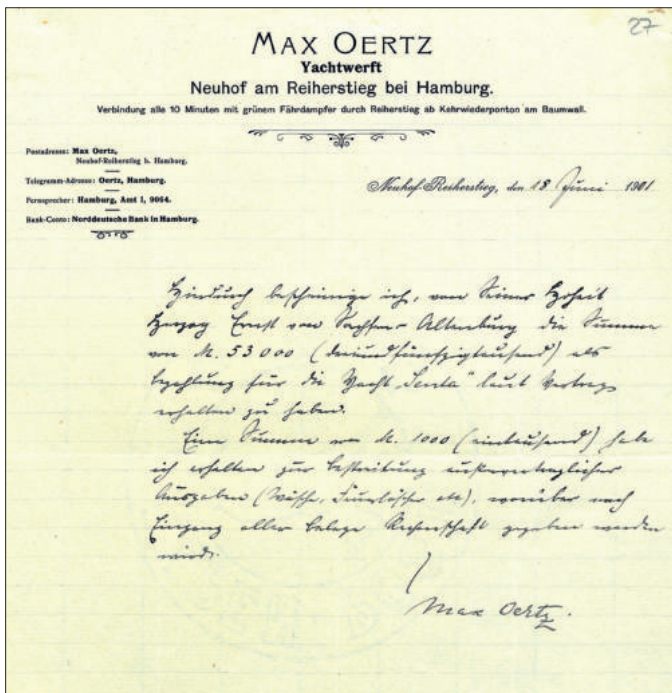 27
MAX OERTZ
Yachtwerft
Neuhof am Reiherstieg bei Hamburg.
Verbindung alle 10 Minuten mit grünem Fährdampfer durch Reiherstieg ab Kehrwiederponton am Baumwall.
Postadresse: Max Oertz,
Neuhof-Reiherstieg b. Hamburg.
Telegramm-Adresse: Oertz, Hamburg.
Fernsprecher: Hamburg, Amt 1, 9064.
Bank-Conto: Norddeutsche Bank in Hamburg.
Neuhof-Reiherstieg, den 18 Juni 1901
Hierdurch bescheinige ich, von Seiner Hoheit
Herzog Ernst von Sachsen-Altenburg die Summe
von M. 53000 (dreiundfünfzigtausend) als
Bezahlung für die Yacht „Senta" laut Vertrag
erhalten zu haben.
Eine Summe von M. 1000 (eintausend) habe
ich erhalten zur Bestreitung außervertraglicher
Ausgaben (Wäsche, Feuerlöscher etc), worüber nach
Eingang aller Belege Rechenschaft gegeben werden
wird.
Max Oertz.